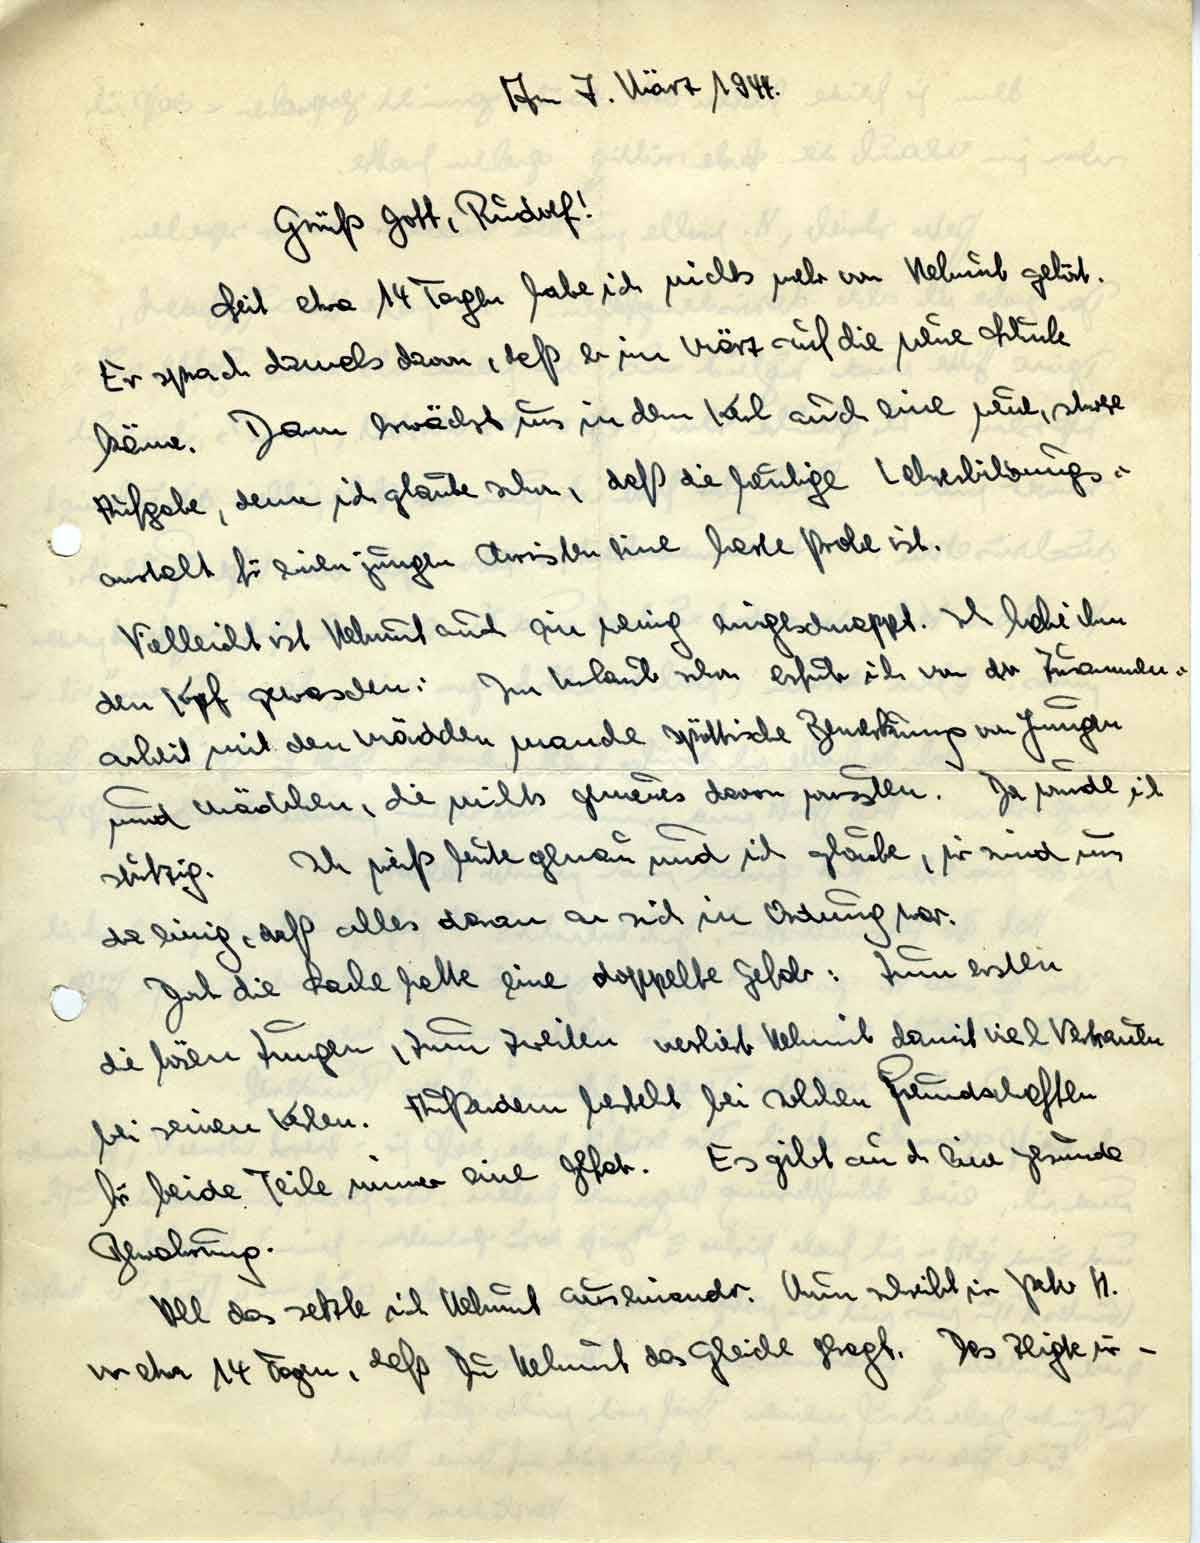 Am 7. März 1944.
Grüß Gott, Rudolf!
Seit etwa 14 Tagen habe ich nichts mehr von Helmut gehört.
Er sprach damals davon, daß er im März auf die neue Schule
käme. Dann erwächst uns in dem Kerl auch eine neue, schwere
Aufgabe, denn ich glaube schon, daß die heutige Lehrerbildungs-
anstalt für einen jungen Christen eine harte Probe ist.
Vielleicht ist Helmut auch ein wenig eingeschnappt. Ich habe ihm
den Kopf gewaschen: Im Urlaub schon erfuhr ich von der Zusammen-
arbeit mit den Mädchen manche spöttische Bemerkung von Jungen
und Mädchen, die nichts genaues davon wussten. Da wurde ich
stutzig. Ich weiß heute genau und ich glaube, wir sind uns
da einig, daß alles daran an sich in Ordnung war.
Doch die Sache hatte eine doppelte Gefahr: Zum ersten
die bösen Zungen, zum zweiten verliert Helmut damit viel Vertrauen
bei seinen Kerlen. Außerdem besteht bei solchen Freundschaften
für beide Teile immer eine Gefahr. Es gibt auch eine gesunde
Bewahrung.
All das setzte ich Helmut auseinander. Nun schreibt mir Pater H.
vor etwa 14 Tagen, daß Du Helmut das Gleiche sagst. Das zeigte mir –